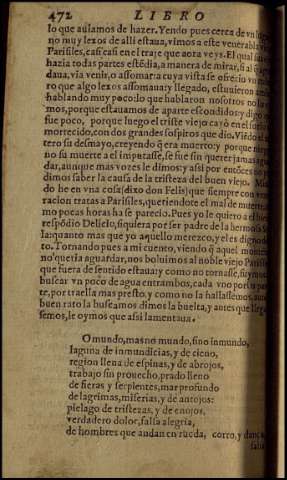 472 LIBRO
lo que auiamos de hazer. Yendo pues cerca de vn
no muy lexos de alli estaua, vimos a este venerable
Parisiles, casi casi en el traje que aora veys. El qual
hazia todas partes estēdia, a manera de mirar, si al
daua, via venir, o assomar: a cuya vista se ofrecio vn
ro que algo lexos assomaua: y llegado, estuuieron
hablando muy poco: lo que hablaron nosotros no lo
mos, porque estauamos de aparte escondidos: y digo
fue poco, porque luego el triste viejo cayò en el suelo
mortecido, con dos grandes sospiros que dio. Viēdo el
tero su desmayo, creyendo q̃ era muerto: y porque
no su muerte a el imputasse, se fue sin querer jamas
dar, aunque mas vozes le dimos: y assi por entōces no
dimos saber la causa de la tristeza del buen viejo.
do he en vna cosa (dixo don Felis) que siempre con
racion tratas a Parisiles, queriendote el mal de muerte
mo pocas horas ha se parecio. Pues yo le quiero a el bien
respōdio Delicio, siquiera por ser padre de la hermosa
la: quanto mas que yo aquello merezco, y el es digno de
to. Tornando pues a mi cuento, viendo q̃ aquel
no queria aguardar, nos boluimos al noble viejo Parisiles
que fuera de sentido estaua: y como no tornasse, fuymos
buscar vn poco de agua entrambos, cada vno por su
te, por traella mas presto. y como no la hallassemos,
buen rato la buscamos dimos la buelta, y antes que
semos, le oymos que assi lamentaua.
O mundo, mas no mundo, sino inmundo,
laguna de inmundicias, y de cieno,
region llena de espinas, y de abrojos,
trabajo sin prouecho, prado lleno
de fieras y serpientes, mar profundo
de lagrimas, miserias, y de antojos:
pielago de tristezas, y de enojos,
verdadero dolor, falsa alegria,
de hombres que andan en rueda, corro, y dança